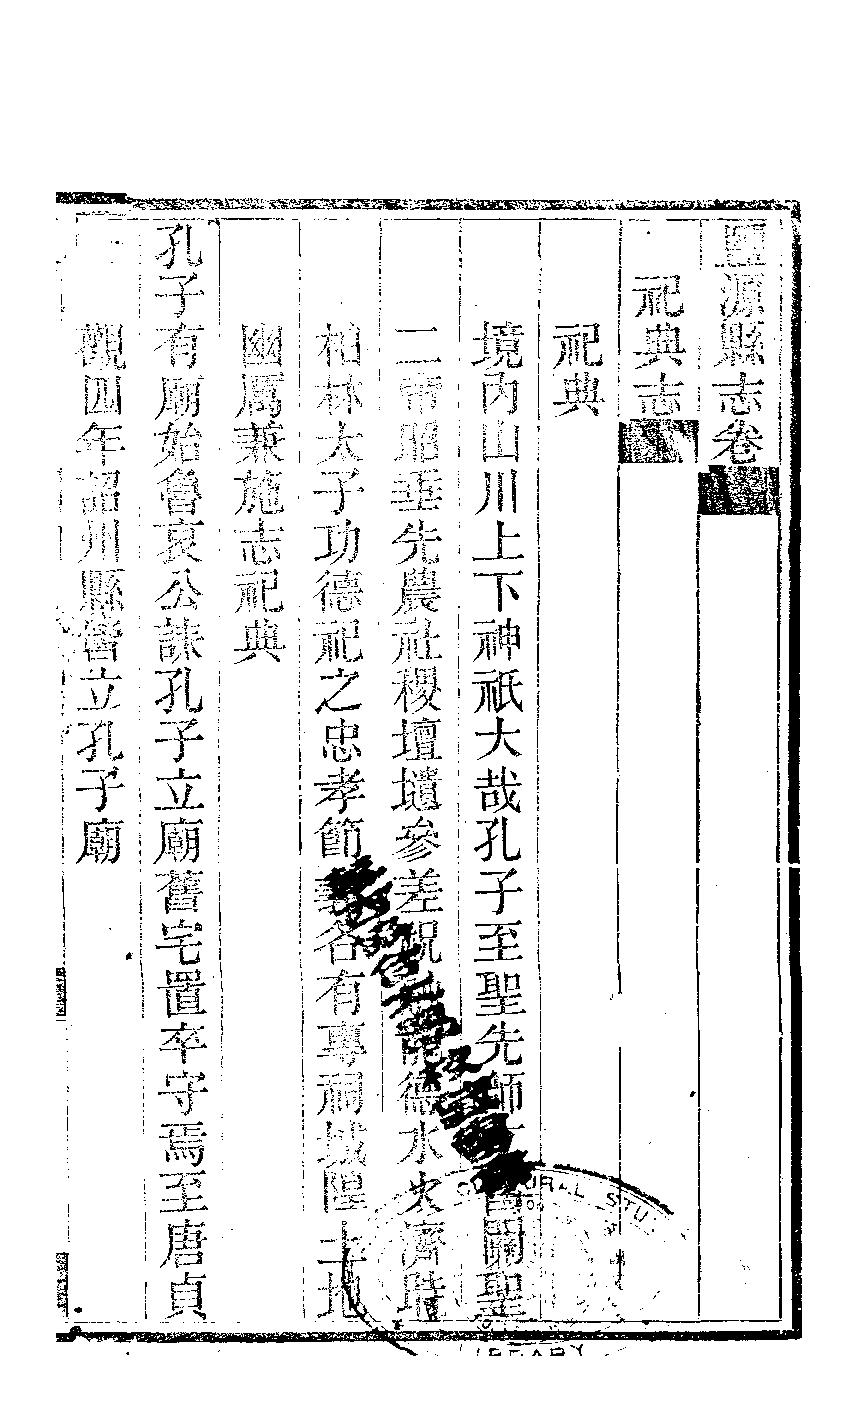 鹽源縣志卷
祀典志
祀典
境內山川上下神祇大哉孔子至聖先師關聖
二帝昭垂先農社稷壇壝參差祝德水火濟時
柏林太子功德祀之忠孝節義各有專祠城隍土地
幽厲兼施志祀典
孔子有廟始魯哀公誄孔子立廟舊宅置卒守焉至唐貞
觀四年詔州縣皆立孔子廟
CULTURAL STU
LIBRARY